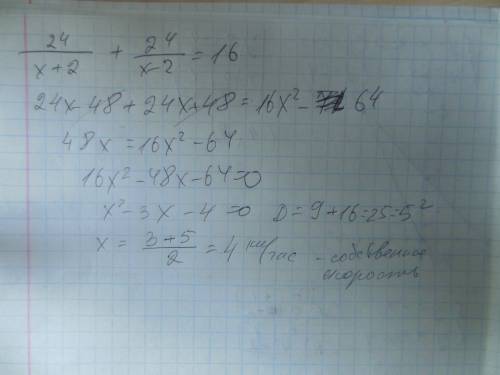 24/(x+2) + 24/(x-2) = 16
24x-48+24x+48=16x²- 64
48x=16x²-64
16x²-48x-64=0
x²-3x-4=0 D=9+16=25=5²
x = (3+5)/2 = 4 км/час - собственная
скорость